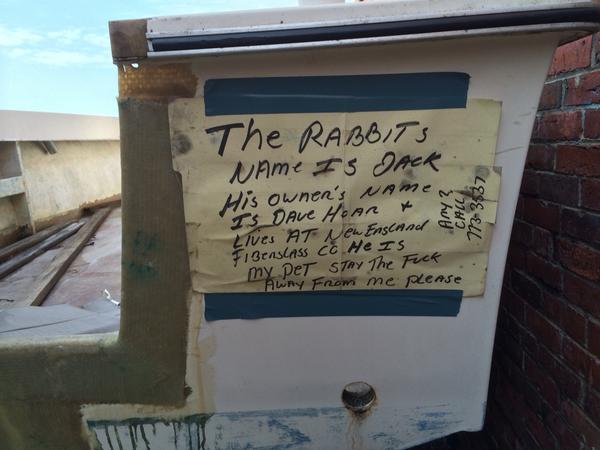 The RABBITs
NAME IS JACK
His OWNER'S NAME
IS DAVE HOAR +
Lives AT NewENGLAND
FIBERGLASS CO He Is
my PeT STAY The Fuck
AWAY From me please
Any?
CALL
773-3537